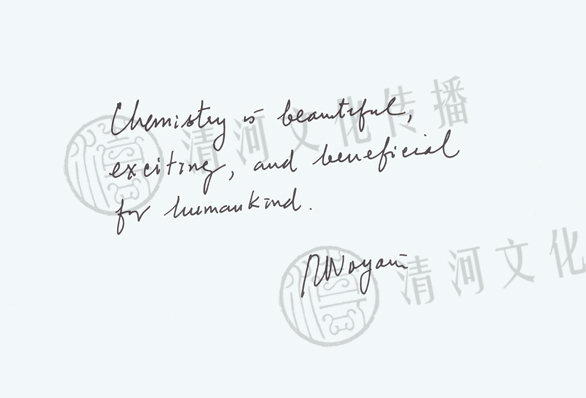 Chemistry is beautiful,
exciting, and beneficial
for humankind.
R Noyori
清河文化传播
清河文化